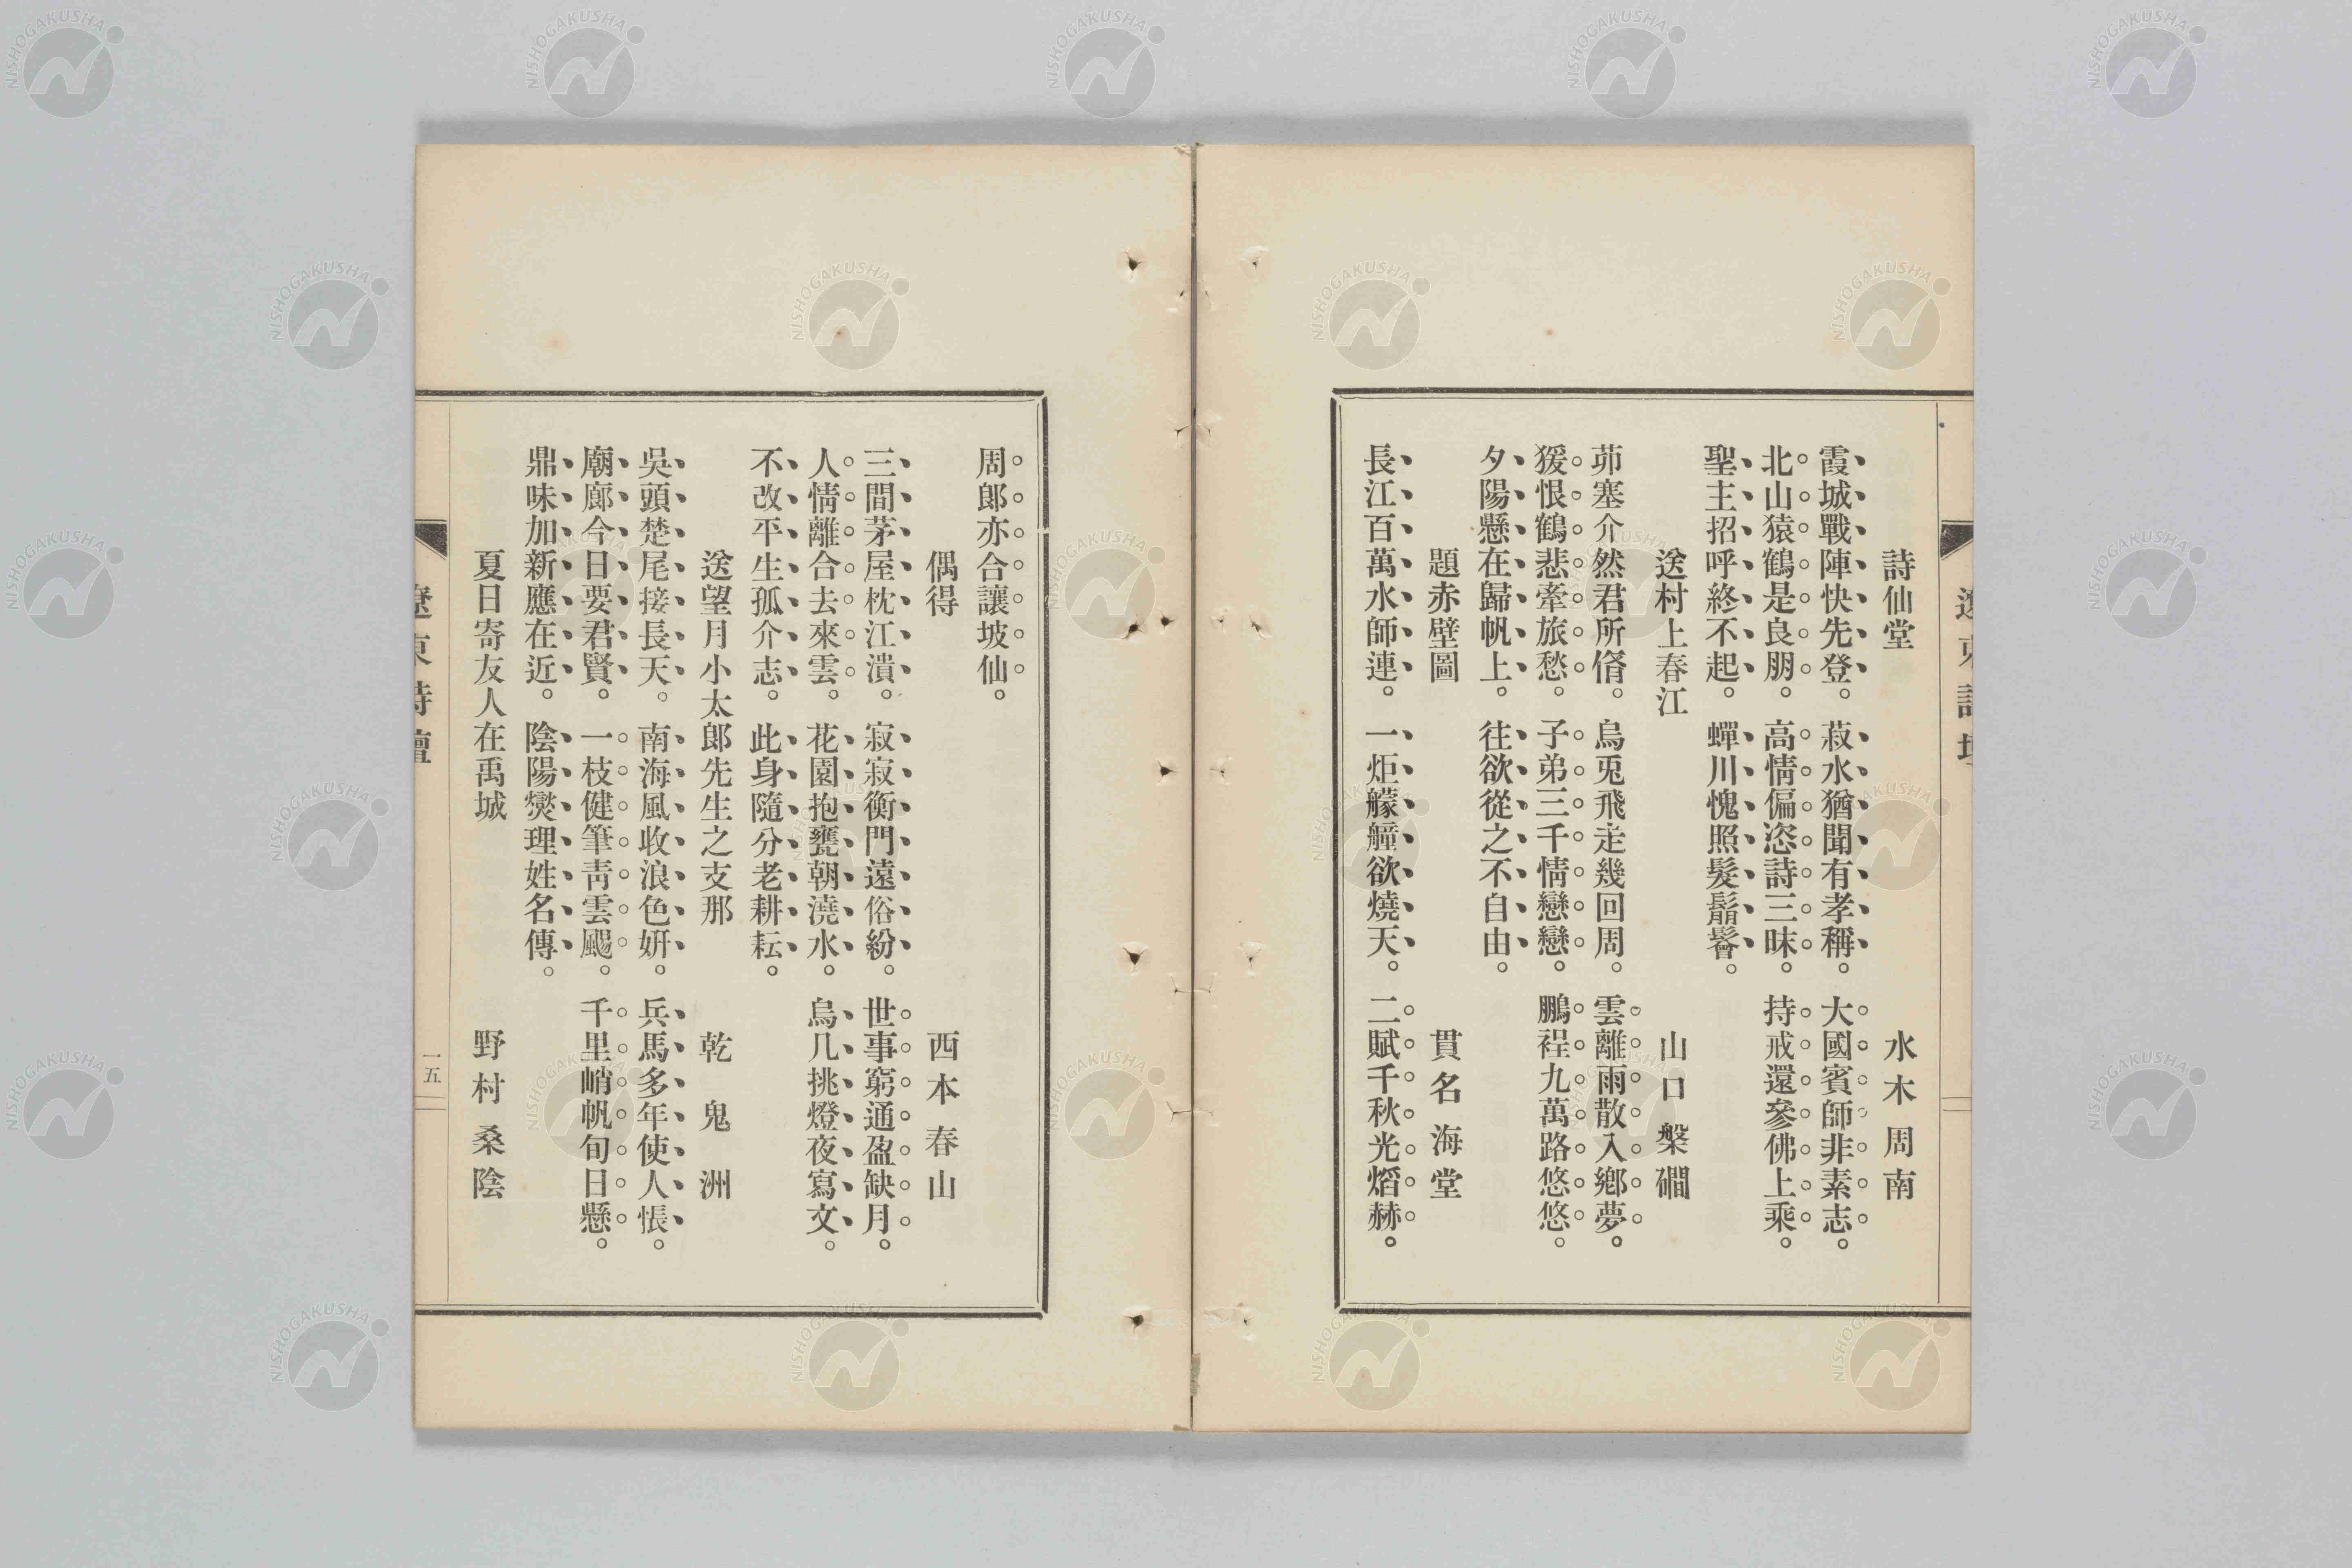 詩仙堂　水木周南
霞城戰陣快先登。菽水猶聞有孝稱。大國賓師非素志。
北山猿鶴是良朋。高情偏恣詩三昧。持戒還參佛上乘。
聖主招呼終不起。蟬川愧照髮鬅鬙。
送村上春江　山口槃磵
茆塞介然君所脩。烏兎飛走幾回周。雲離雨散入鄉夢。
猨恨鶴悲牽旅愁。子弟三千情戀戀。鵬程九萬路悠悠。
夕陽懸在歸帆上。往欲從之不自由。
題赤壁圖　貫名海堂
長江百萬水師連。一炬艨艟欲燒天。二賦千秋光熖赫。
周郎亦合讓坡仙。
偶得　西本春山
三間茅屋枕江濆。寂寂衡門遠俗紛。世事窮通盈缺月。
人情離合去來雲。花園抱甕朝澆水。烏几挑燈夜寫文。
不改平生孤介志。此身隨分老耕耘。
送望月小太郎先生之支那　乾鬼洲
吳頭楚尾接長天。南海風收浪色妍。兵馬多年使人悵。
廟廊今日要君賢。一枝健筆靑雲颺。千里峭帆旬日懸。
鼎味加新應在近。陰陽爕理姓名傳。
夏日寄友人在禹城　野村桑陰
遼東詩壇
一五
NISHOGAKUSHA